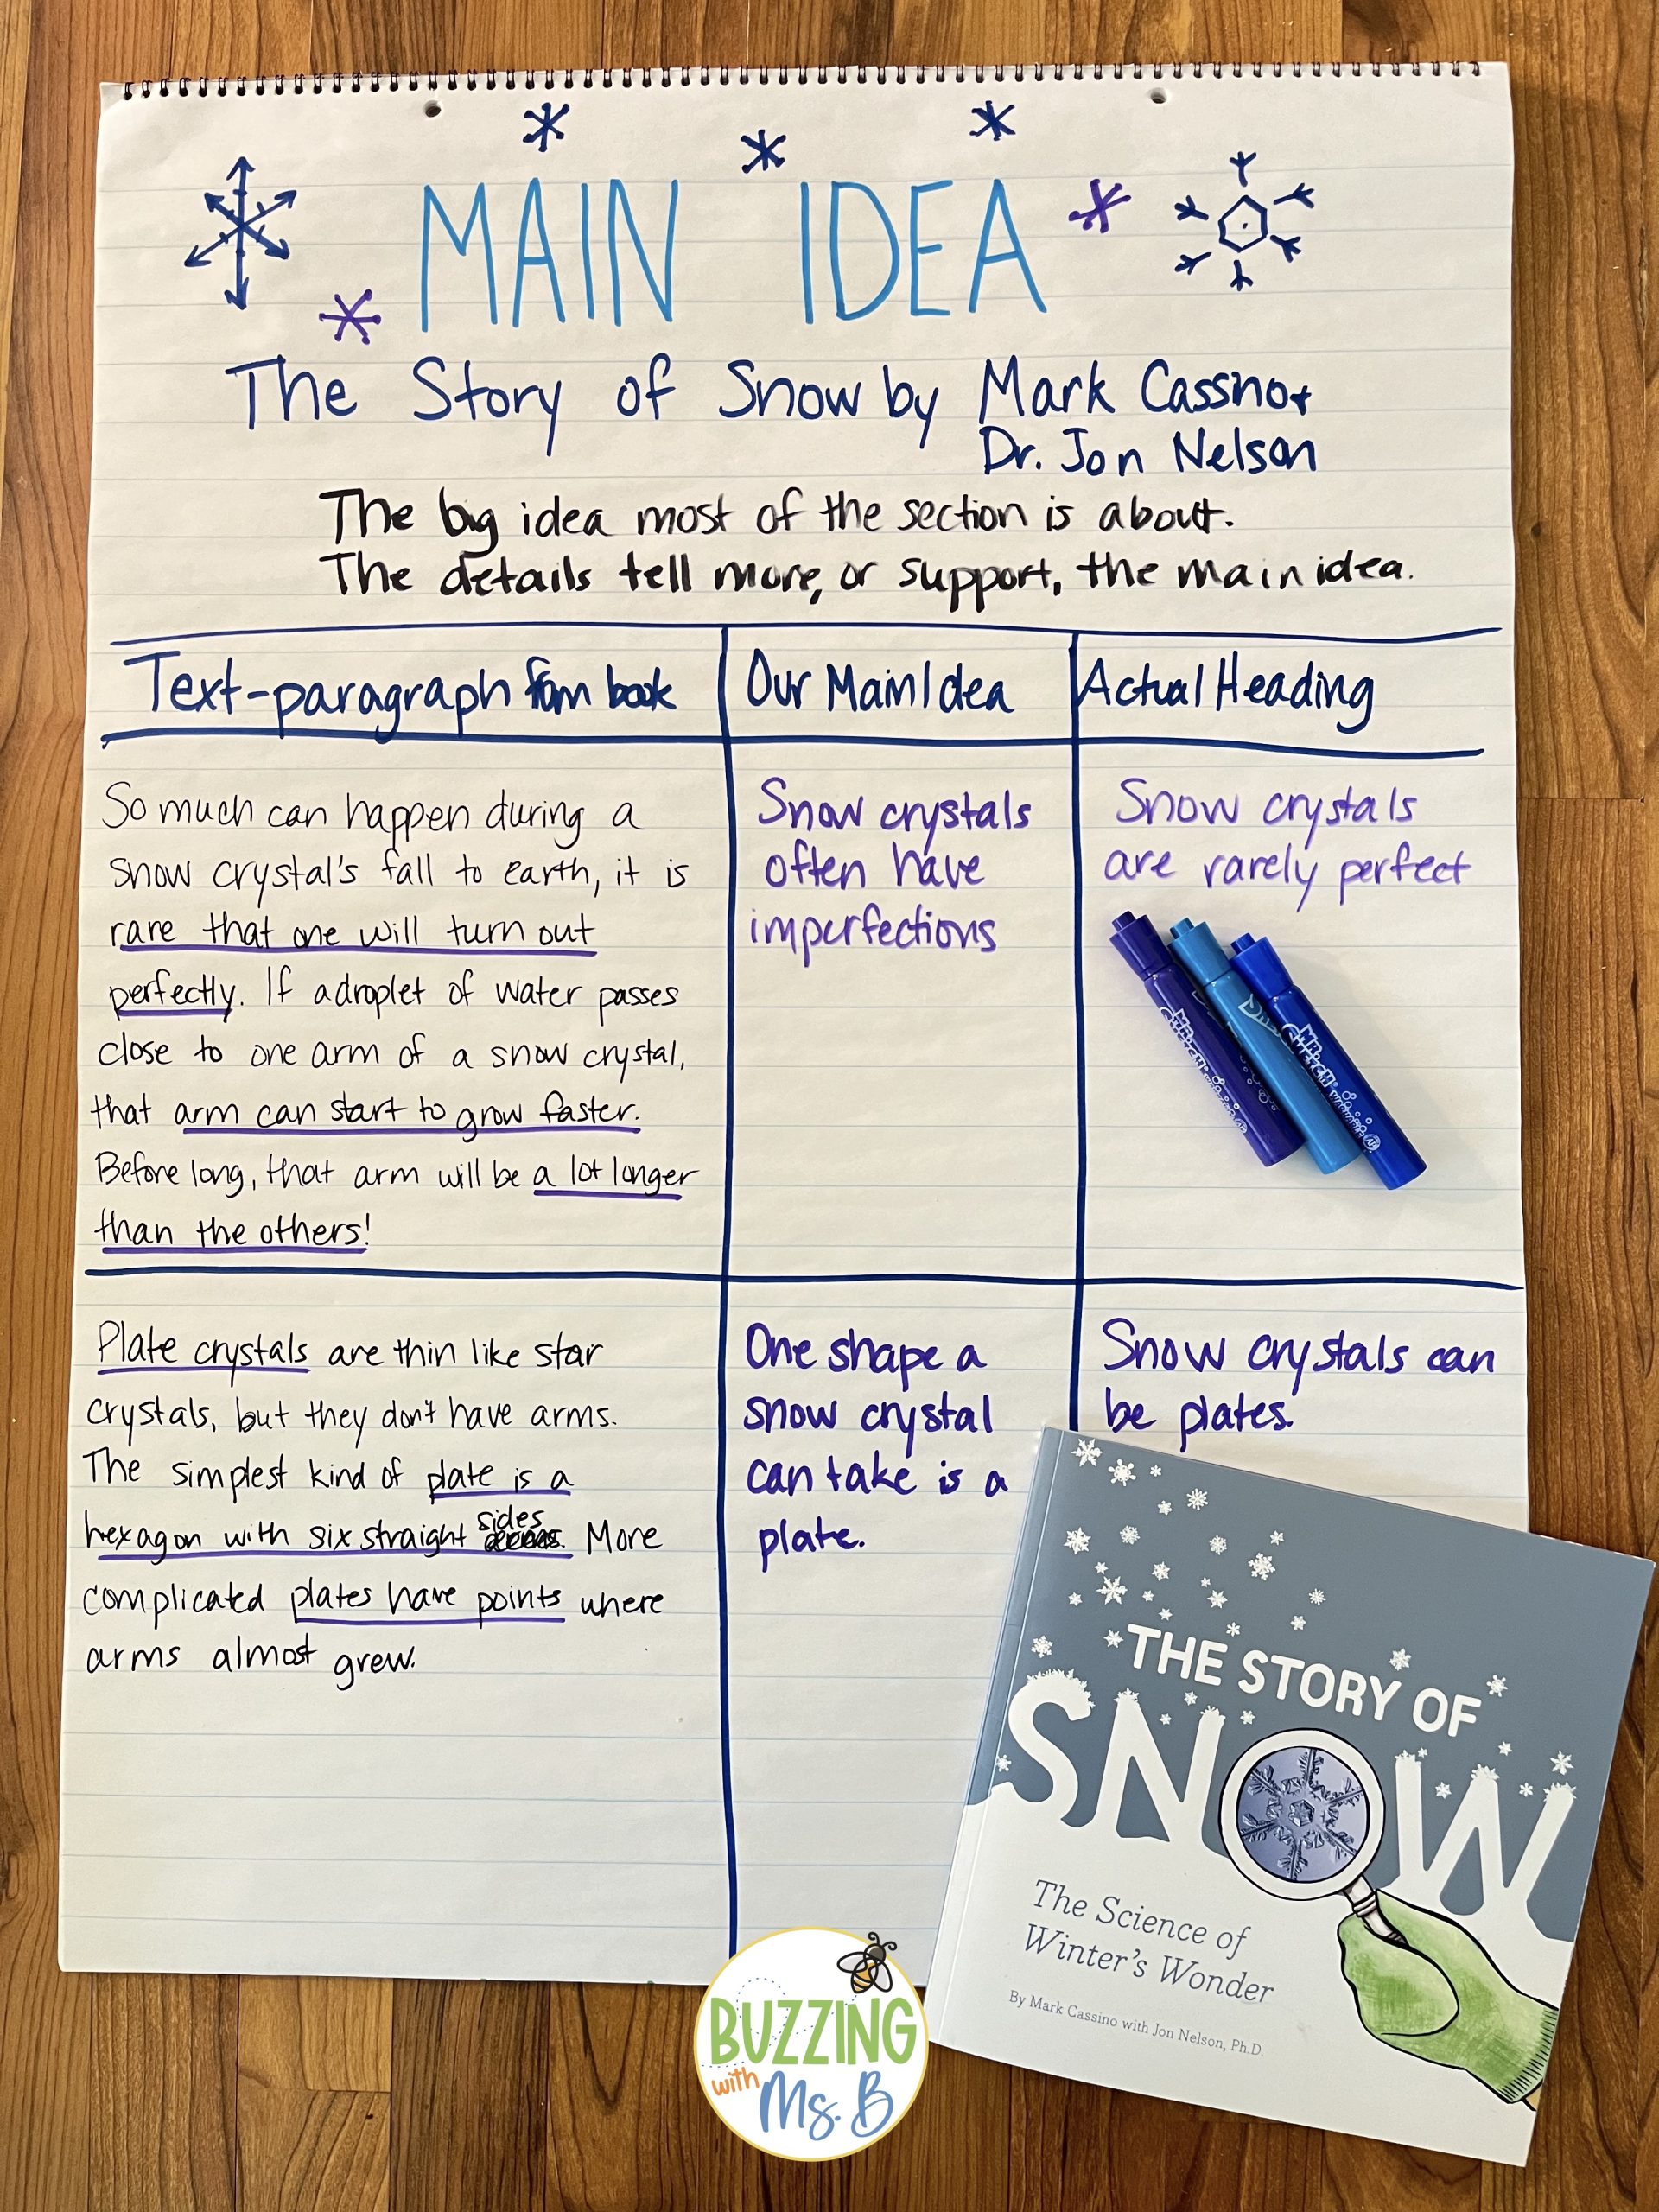 MAIN IDEA
The Story of Snow by Mark Cassino +
Dr. Jon Nelson
The big idea most of the section is about.
The details tell more, or support, the main idea.
Text-paragraph from book
Our Main Idea
Actual Heading
So much can happen during a
snow crystal's fall to earth, it is
rare that one will turn out
perfectly. If a droplet of water passes
close to one arm of a snow crystal,
that arm can start to grow faster.
Before long, that arm will be a lot longer
than the others!
Snow crystals
often have
imperfections
Snow crystals
are rarely perfect
Mr.
Sketch
Mr.
Sketch
Plate crystals are thin like star
crystals, but they don't have arms.
The simplest kind of plate is a
hexagon with six straight sides. More
complicated plates have points where
arms almost grew.
One shape a
snow crystal
can take is a
plate.
Snow crystals can
be plates.
THE STORY OF
SNOW
The Science of
Winter's Wonder
By Mark Cassino with Jon Nelson, Ph.D.
BUZZING
with
Ms. B